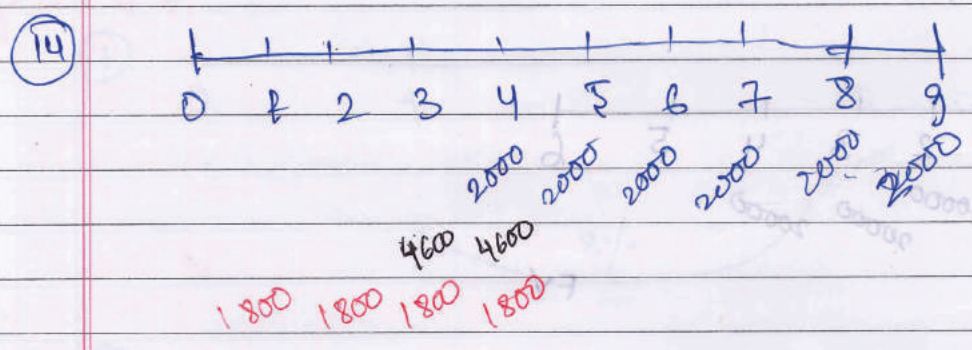 14
0 1 2 3 4 5 6 7 8 9
2000 2000 2000 2000 2000 2000
4600 4600
1800 1800 1800 1800